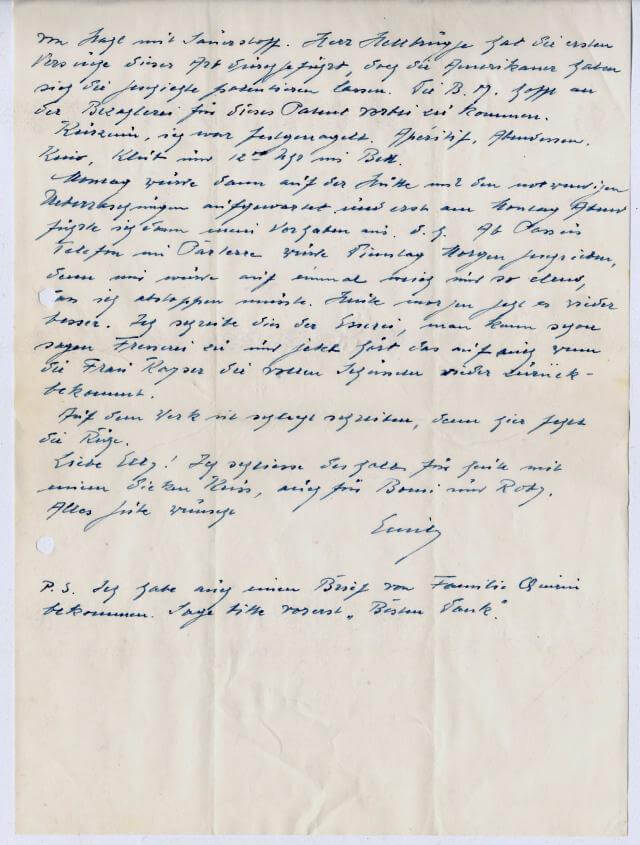 von Stahl mit Sauerstoff. Herr Hellbrügge hat die ersten
Versuche dieser Art durchgeführt, doch die Amerikaner haben
sich die patentieren lassen. Die B. M. hofft an
der Bezahlerei für dieses Patent vorbei zu kommen.
Kurzum, ich war festgenagelt. Apéritif, Abendessen.
Kino, Klub und 12 Uhr im Bett.
Montag wurde dann auf der Hütte mit den notwendigen
Ueberraschungen aufgewartet und erst am Montag Abend
führte ich dann mein Vorhaben aus. d. h. Ab
Telefon im Parterre wurde Dienstag Morgen geschrieben,
denn mir wurde auf einmal und so elend,
dass ich abstoppen musste. Heute morgen geht es wieder
besser. Ich schreibe dies der Esserei, man kann schon
sagen Fresserei zu und jetzt hört das auf auch wenn
die Frau Kayser die vollen Schüsseln wieder zurück-
bekommt.
Auf dem Werk ist schlecht schreiben, denn hier fehlt
die Ruhe.
Liebe Elly! Ich schliesse deshalb für heute mit
einem dicken Kuss, auch für Bomi und Roby.
Alles Gute wünscht
Emil
P.S. Ich habe auch einen Brief von Familie Quirin
bekommen. Sage bitte vorerst „Besten Dank“.